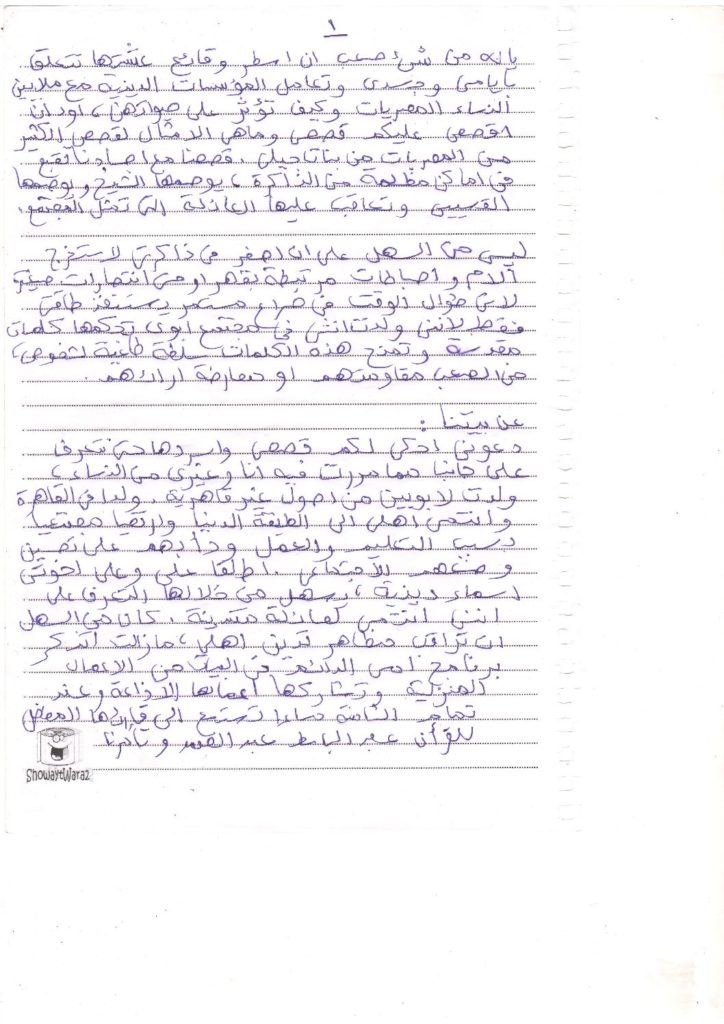 ١
ياله من شيء صعب ان اسطر وقائع عشتها تتعلق
بأيامي وجسدي وتعامل المؤسسات الدينية مع ملايين
النساء المصريات وكيف تؤثر على حيواتهن، اود أن
اقصص عليكم قصصي وماهي الا مثال لقصص الكثير
من المصريات من بنات جيلي. قصصنا مع اجسادنا تقبع
في اماكن مظلمة من الذاكرة، يوصمها الشيخ ويوصمها
القسيس وتعاقب عليها العائلة التي تمثل المجتمع.
ليس من السهل على ان احفر في ذاكرتي لاستخرج
آلام و احباطات مرتبطة بقهر او حتى انتصارات صغيرة
لاني طوال الوقت في صراع مستمر يستنفذ طاقتي
فقط لأنني ولدت انثى في مجتمع ابوى تحكمها كلمات
مقدسة وتمنح هذه الكلمات سلطة طاغية لشخوص،
من الصعب مقاومتهم او معارضة ارائهم.
عن بيتنا :
دعوني احكي لكم قصصي واسردها حتى نتعرف
على جانبا مما مررت فيه انا وغيري من النساء،
ولدت لابويين من اصول غير قاهرية. ولدا في القاهرة
وانتمى اهلي الى الطبقة الدنيا وارتقيا مجتمعيا
بسبب التعليم والعمل ودأبهم على تحسين
وضعهم الاجتماعي. اطلقا علي وعلى اخوتي
اسماء دينية، يسهل من خلالها التعرف على
انني انتمي لعائلة متدينة. كان من السهل
ان تراقب مظاهر تدين اهلي، مازلت اتذكر
برنامج امي الدائم في البيت من الاعمال
المنزلية وتشاركها أعمالها الاذاعة وعند
تمام الثامنة مساءا تستمع الى قارئها المفضل
للقرآن عبد الباسط عبد الصمد و تأمرنا
ShowaytWara2